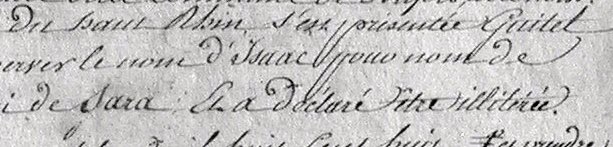 du haut Rhin, s'est présentée Guitel
erver le nom d'Isaac pour nom de
i de Sara; Et a Déclaré être illitérée.
huit